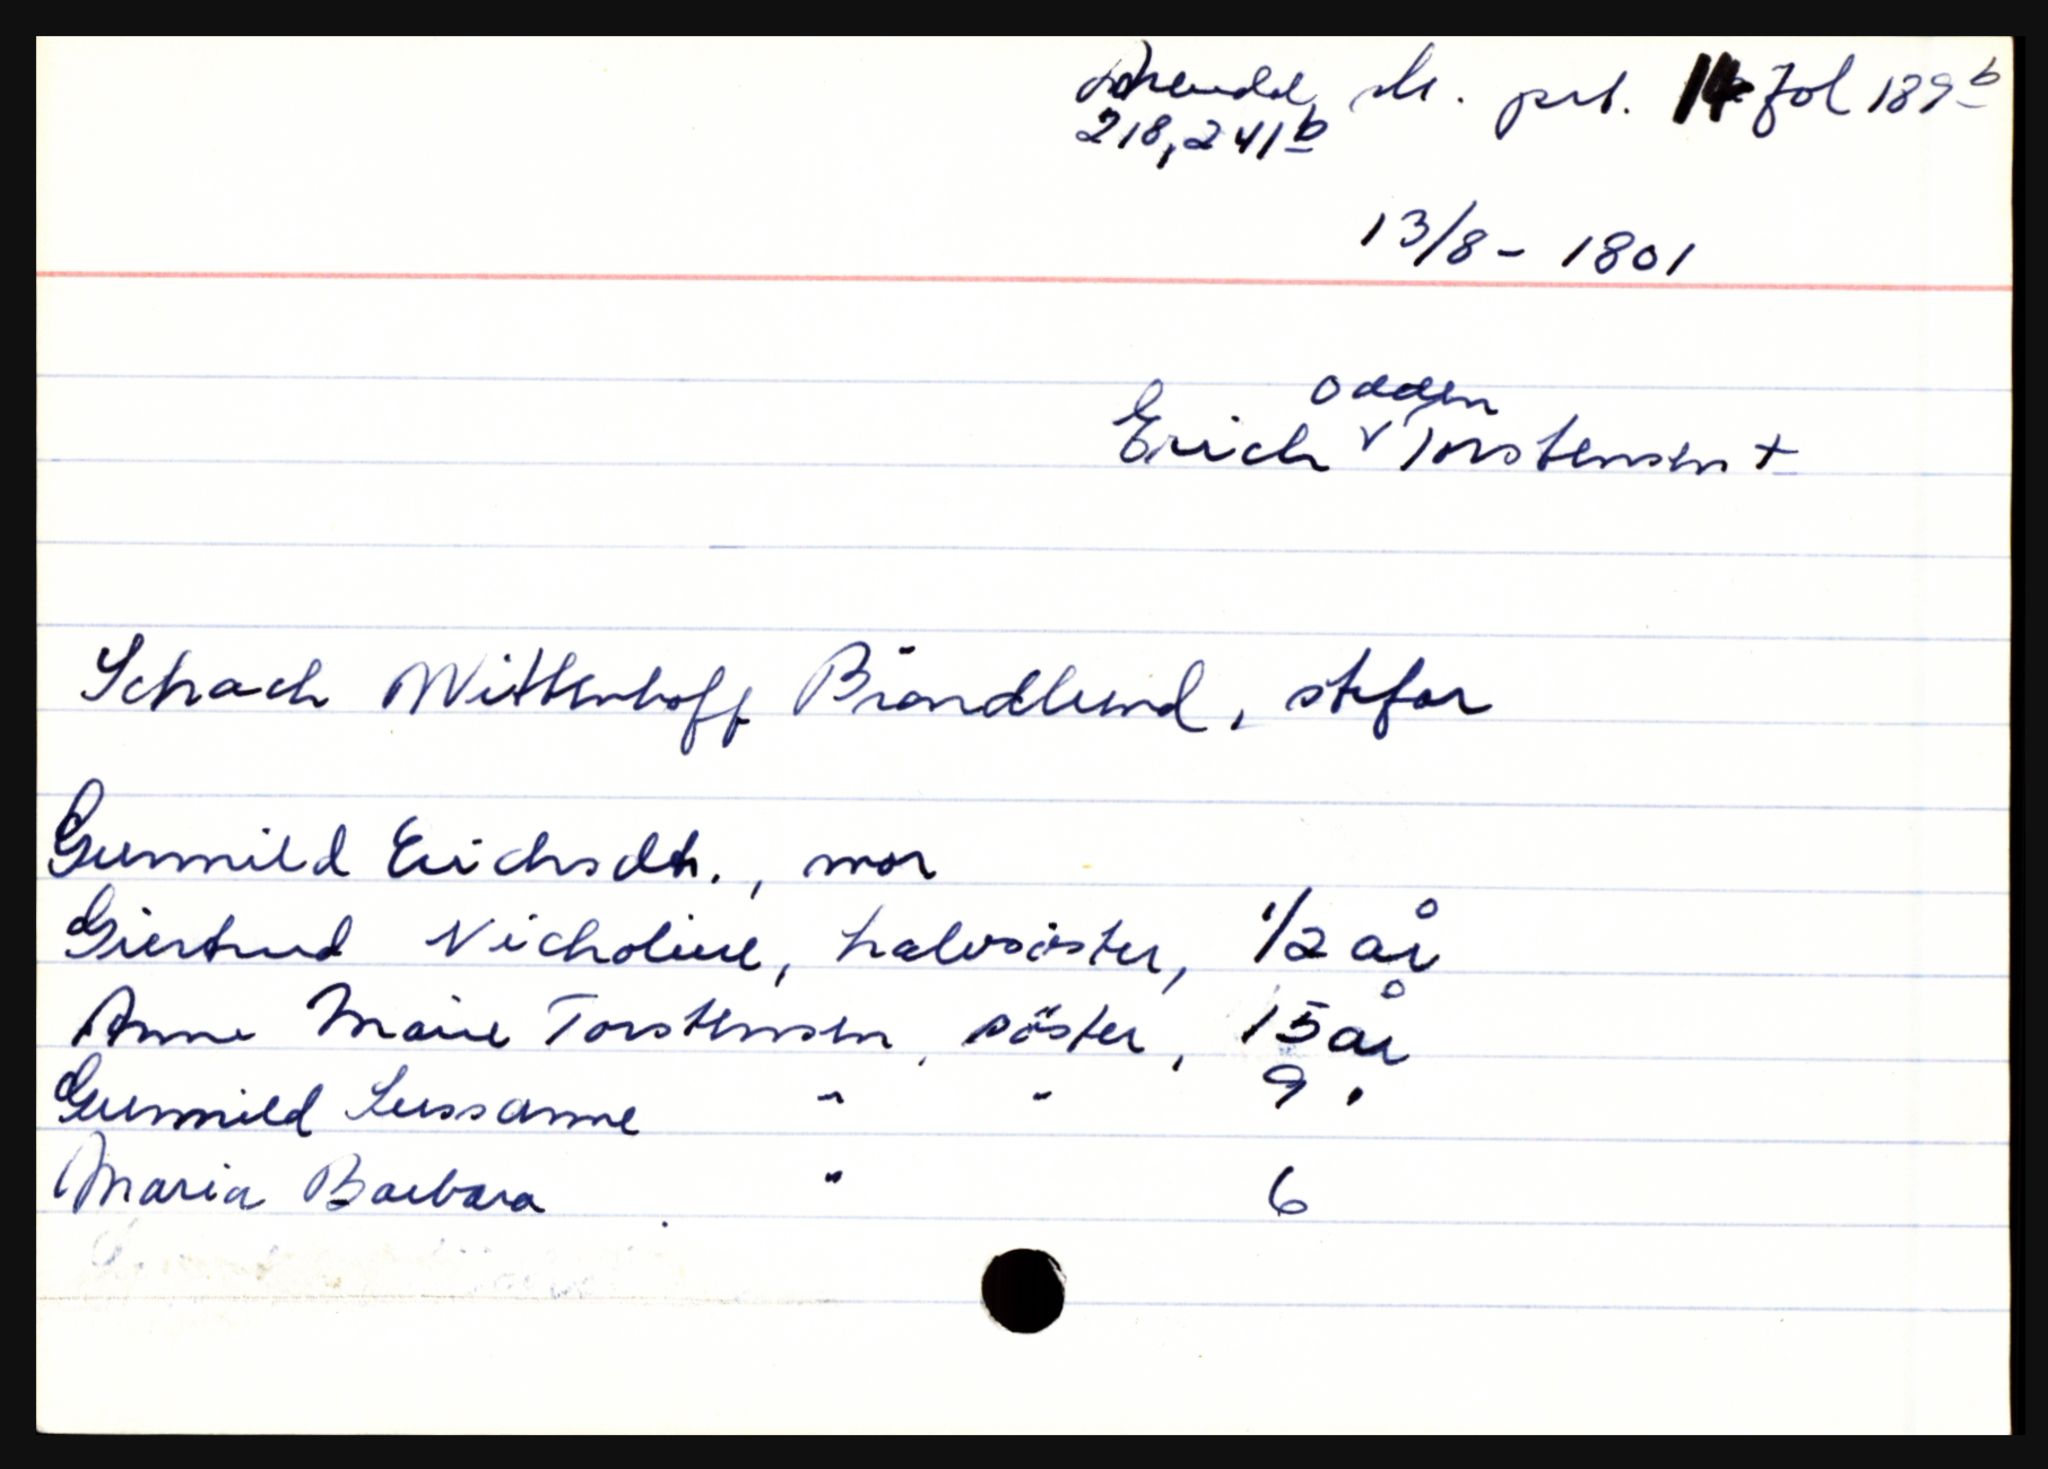 Arendal sk. prt. 14 fol 189 b
218, 241 b
13/8 - 1801
Odden
Erich v Torstensen +
Schach Wittenhoff Bröndlund, stefar
Gunnild Erichsdtr., mor
Giertrud Nicholine, halvsöster, 1/2 år
Anne Marie Torstensen, söster, 15 år
Gunnild Sussanne " " 9 "
Maria Barbara " 6